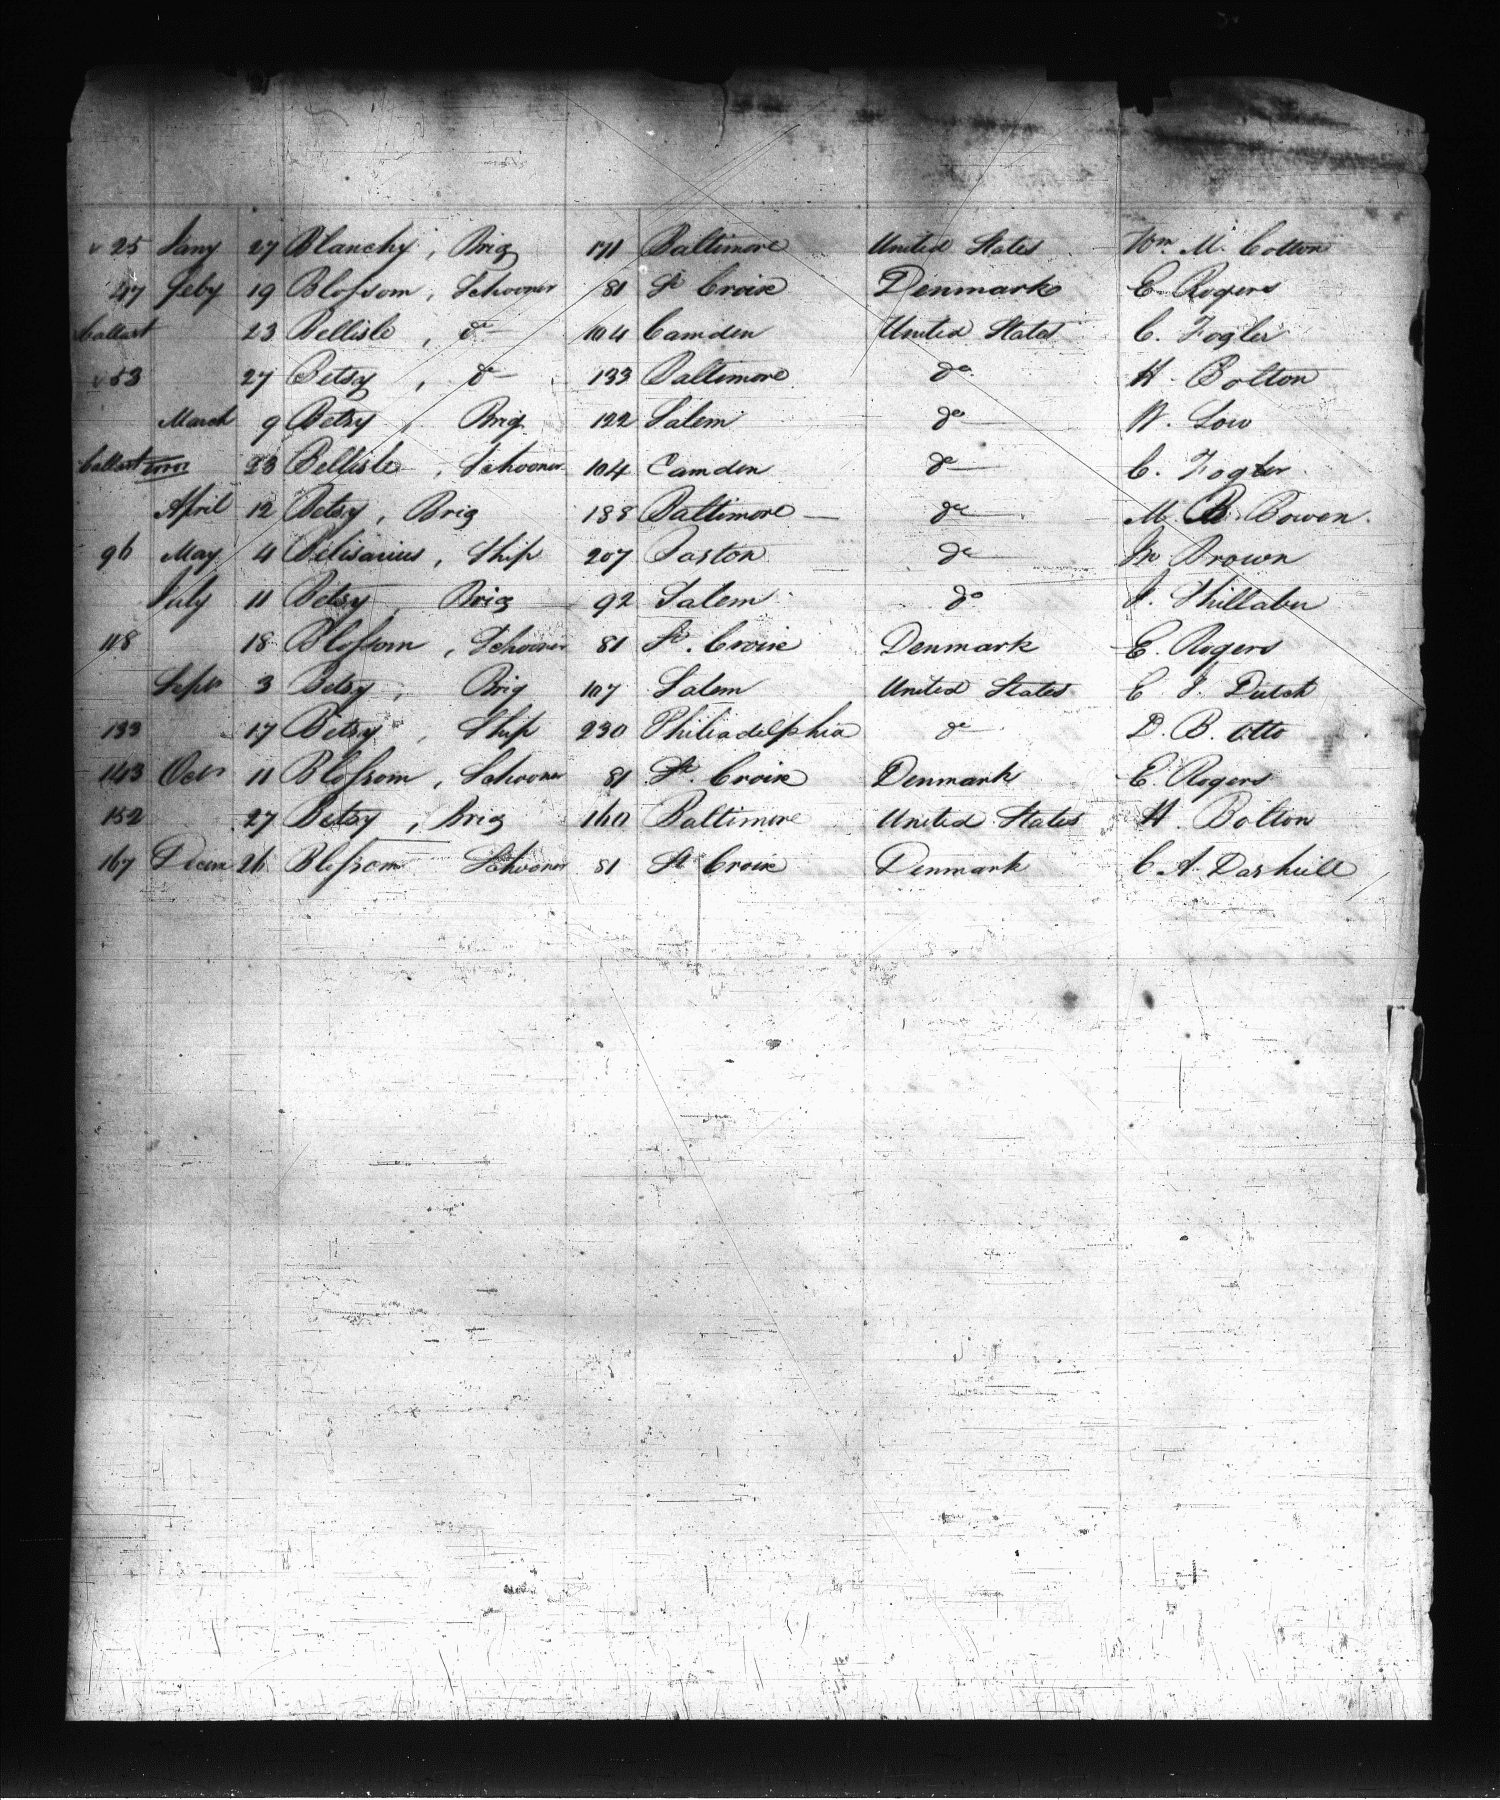 v 25 Jany 27 Blanchy, Brig 171 Baltimore United States Wm M. Cotton
47 Feby 19 Blossom, Schooner 81 St Croix Denmark E Rogers
ballast 23 Bellisle, do 104 Camden United States C. Fogler
v 53 27 Betsy, do 133 Baltimore do H. Bolton
March 9 Betsy, Brig 122 Salem do W. Low
ballast error 23 Bellisle, Schooner 104 Camden do C. Fogler
April 12 Betsy, Brig 188 Baltimore do M. B. Bowen.
96 May 4 Belisarius, Ship 207 Boston do Brown
July 11 Betsy, Brig 92 Salem do J. Shillaber
118 18 Blossom, Schooner 81 St. Croix Denmark E. Rogers
Sepr 3 Betsy, Brig 107 Salem United States E J. Dutch
133 17 Betsy, Ship 230 Philiadelphia do D. B. Otto
143 Octr 11 Blossom, Schooner 81 St. Croix Denmark E. Rogers
152 27 Betsy, Brig 160 Baltimore United States H. Bolton
167 Decem 26 Blossom Schooner 81 St Croix Denmark C. A. Dashiell